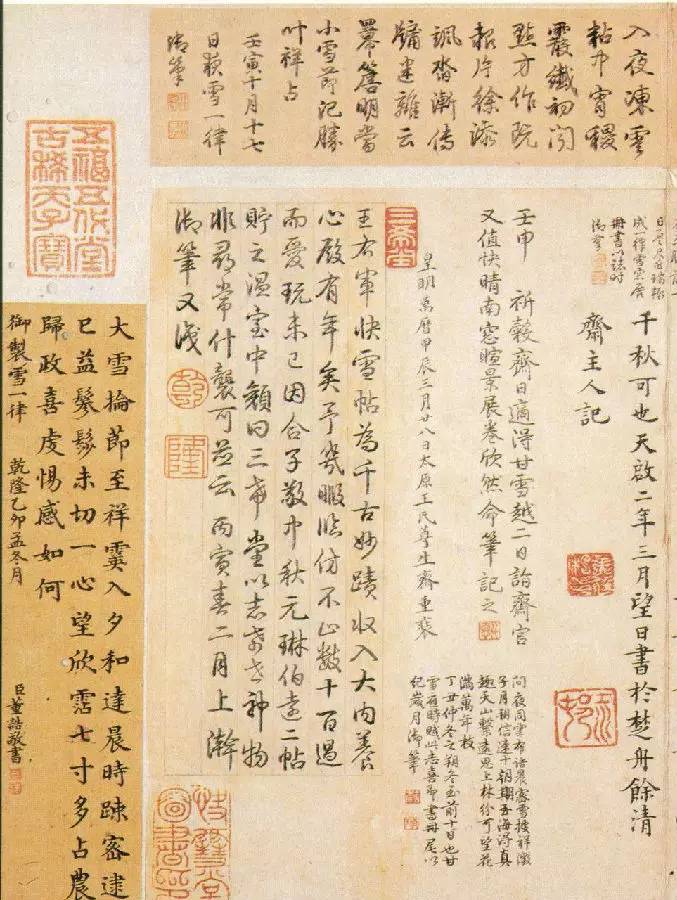 入夜凍雲
粘中宵稷
霰纖初聞
點方作
韜片徐添
飄沓漸
牖迷離云
羃簷明當
小雪節記勝
叶祥占
壬寅十月十七
日雪一律
御筆
冊書以誌時
御筆
千秋可也天啟二年三月望日書於楚舟餘清
齋主人記
壬申 祈穀齋日適得甘雪越二日詣齋宮
又值快晴南窓暄景展卷欣然命筆記之
問夜同雲布詰晨密雪披祥徵
子月朔信逮十朝期海得真
趣天山繫遠思上林徐可望花
滿萬年枝
丁丑仲冬之朔冬至前十日也甘
雪應時賦此志喜即書冊尾以
紀歲月御筆
三希堂
皇明萬曆甲辰三月廿八日太原王氏尊生齋重裝
王右軍快雪帖為千古妙蹟收入大內養
心殿有年矣予幾暇臨仿不止數十百過
而愛玩未已因合子敬中秋元琳伯遠二帖
貯之溫室中顏曰三希堂以志希世神物
非尋常什襲可並云丙寅春二月上澣
御筆又識
乾
隆
五福五代堂
古稀天子寶
大雪掄節至祥霙入夕和達晨時踈密逮
已益鬖髿未切一心望欣霑七寸多占農
歸政喜虔惕感如何
御製雪一律 乾隆乙卯孟冬月
臣董誥敬書